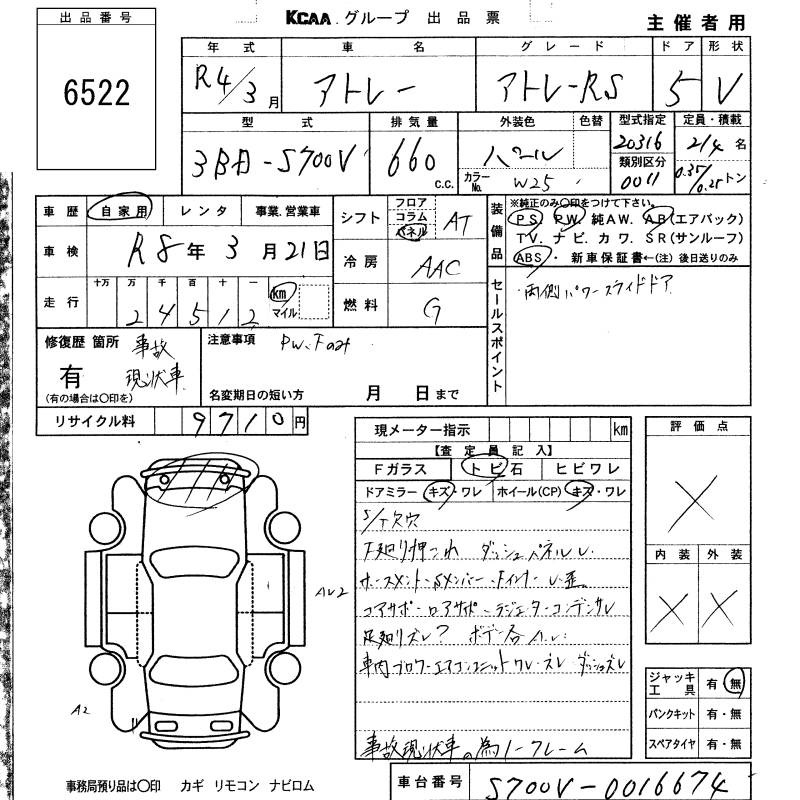 出品番号
6522
KCAA.グループ 出品票
主催者用
年式 車名 グレード ドア 形状
R4/3月 アトレー アトレーRS 5 V
型式 排気量 外装色 色替 型式指定 定員・積載
3BD-S700V 660 c.c. パール 20316 2/4名
カラーNo. W25 類別区分 0011 0.35/0.25トン
車歴 自家用 レンタ 事業.営業車
車検 R8年3月21日
走行 十万 万 千 百 十 一
24512 km マイル
シフト フロア コラム パネル AT
冷房 AAC
燃料 G
装備品
※純正のみ○印をつけて下さい。
PS PW 純AW. AB(エアバック)
TV. ナビ. カワ. SR(サンルーフ)
ABS・ 新車保証書←(注)後日送りのみ
セールスポイント
・両側パワースライドドア
修復歴 箇所 事故
有 現状車
(有の場合は○印を)
注意事項
名変期日の短い方 月 日まで
リサイクル料 9710円
現メーター指示 km
【査定員記入】
Fガラス トビ石 ヒビワレ
ドアミラー キズ・ワレ ホイール(CP) キズ・ワレ
S/T欠穴
下廻り押コレ ダッシュパネルレ
コアサポ・ロアサポ・ラジエーターコンデンサレ
足廻りズレ? ボデー各
車内ブロワーエアコンユニットワレ・ズレ ダッシュズレ
事故現状車の為ノークレーム
評価点
X
内装 外装
X X
AU2
A2
ジャッキ工具 有・無
パンクキット 有・無
スペアタイヤ 有・無
事務局預り品は○印 カギ リモコン ナビロム
車台番号 S700V-0016674